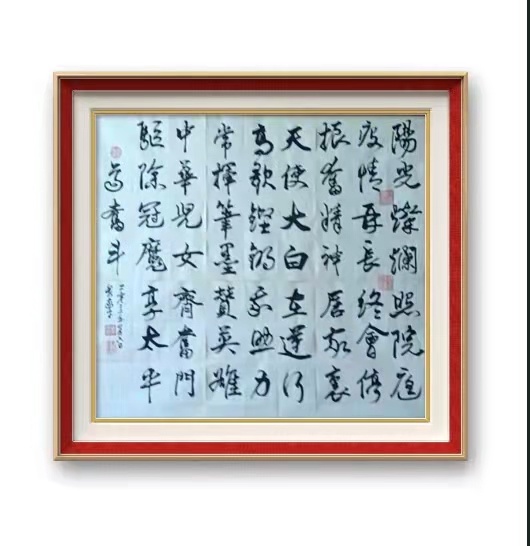 陽光燦爛照院庭
疫情再長終會停
振奮精神居家裏
天使大白在逆行
高歌鏗鏘助力
常揮筆墨贊英雄
中華兒女齊奮鬥
驅除冠魔享太平
奮斗